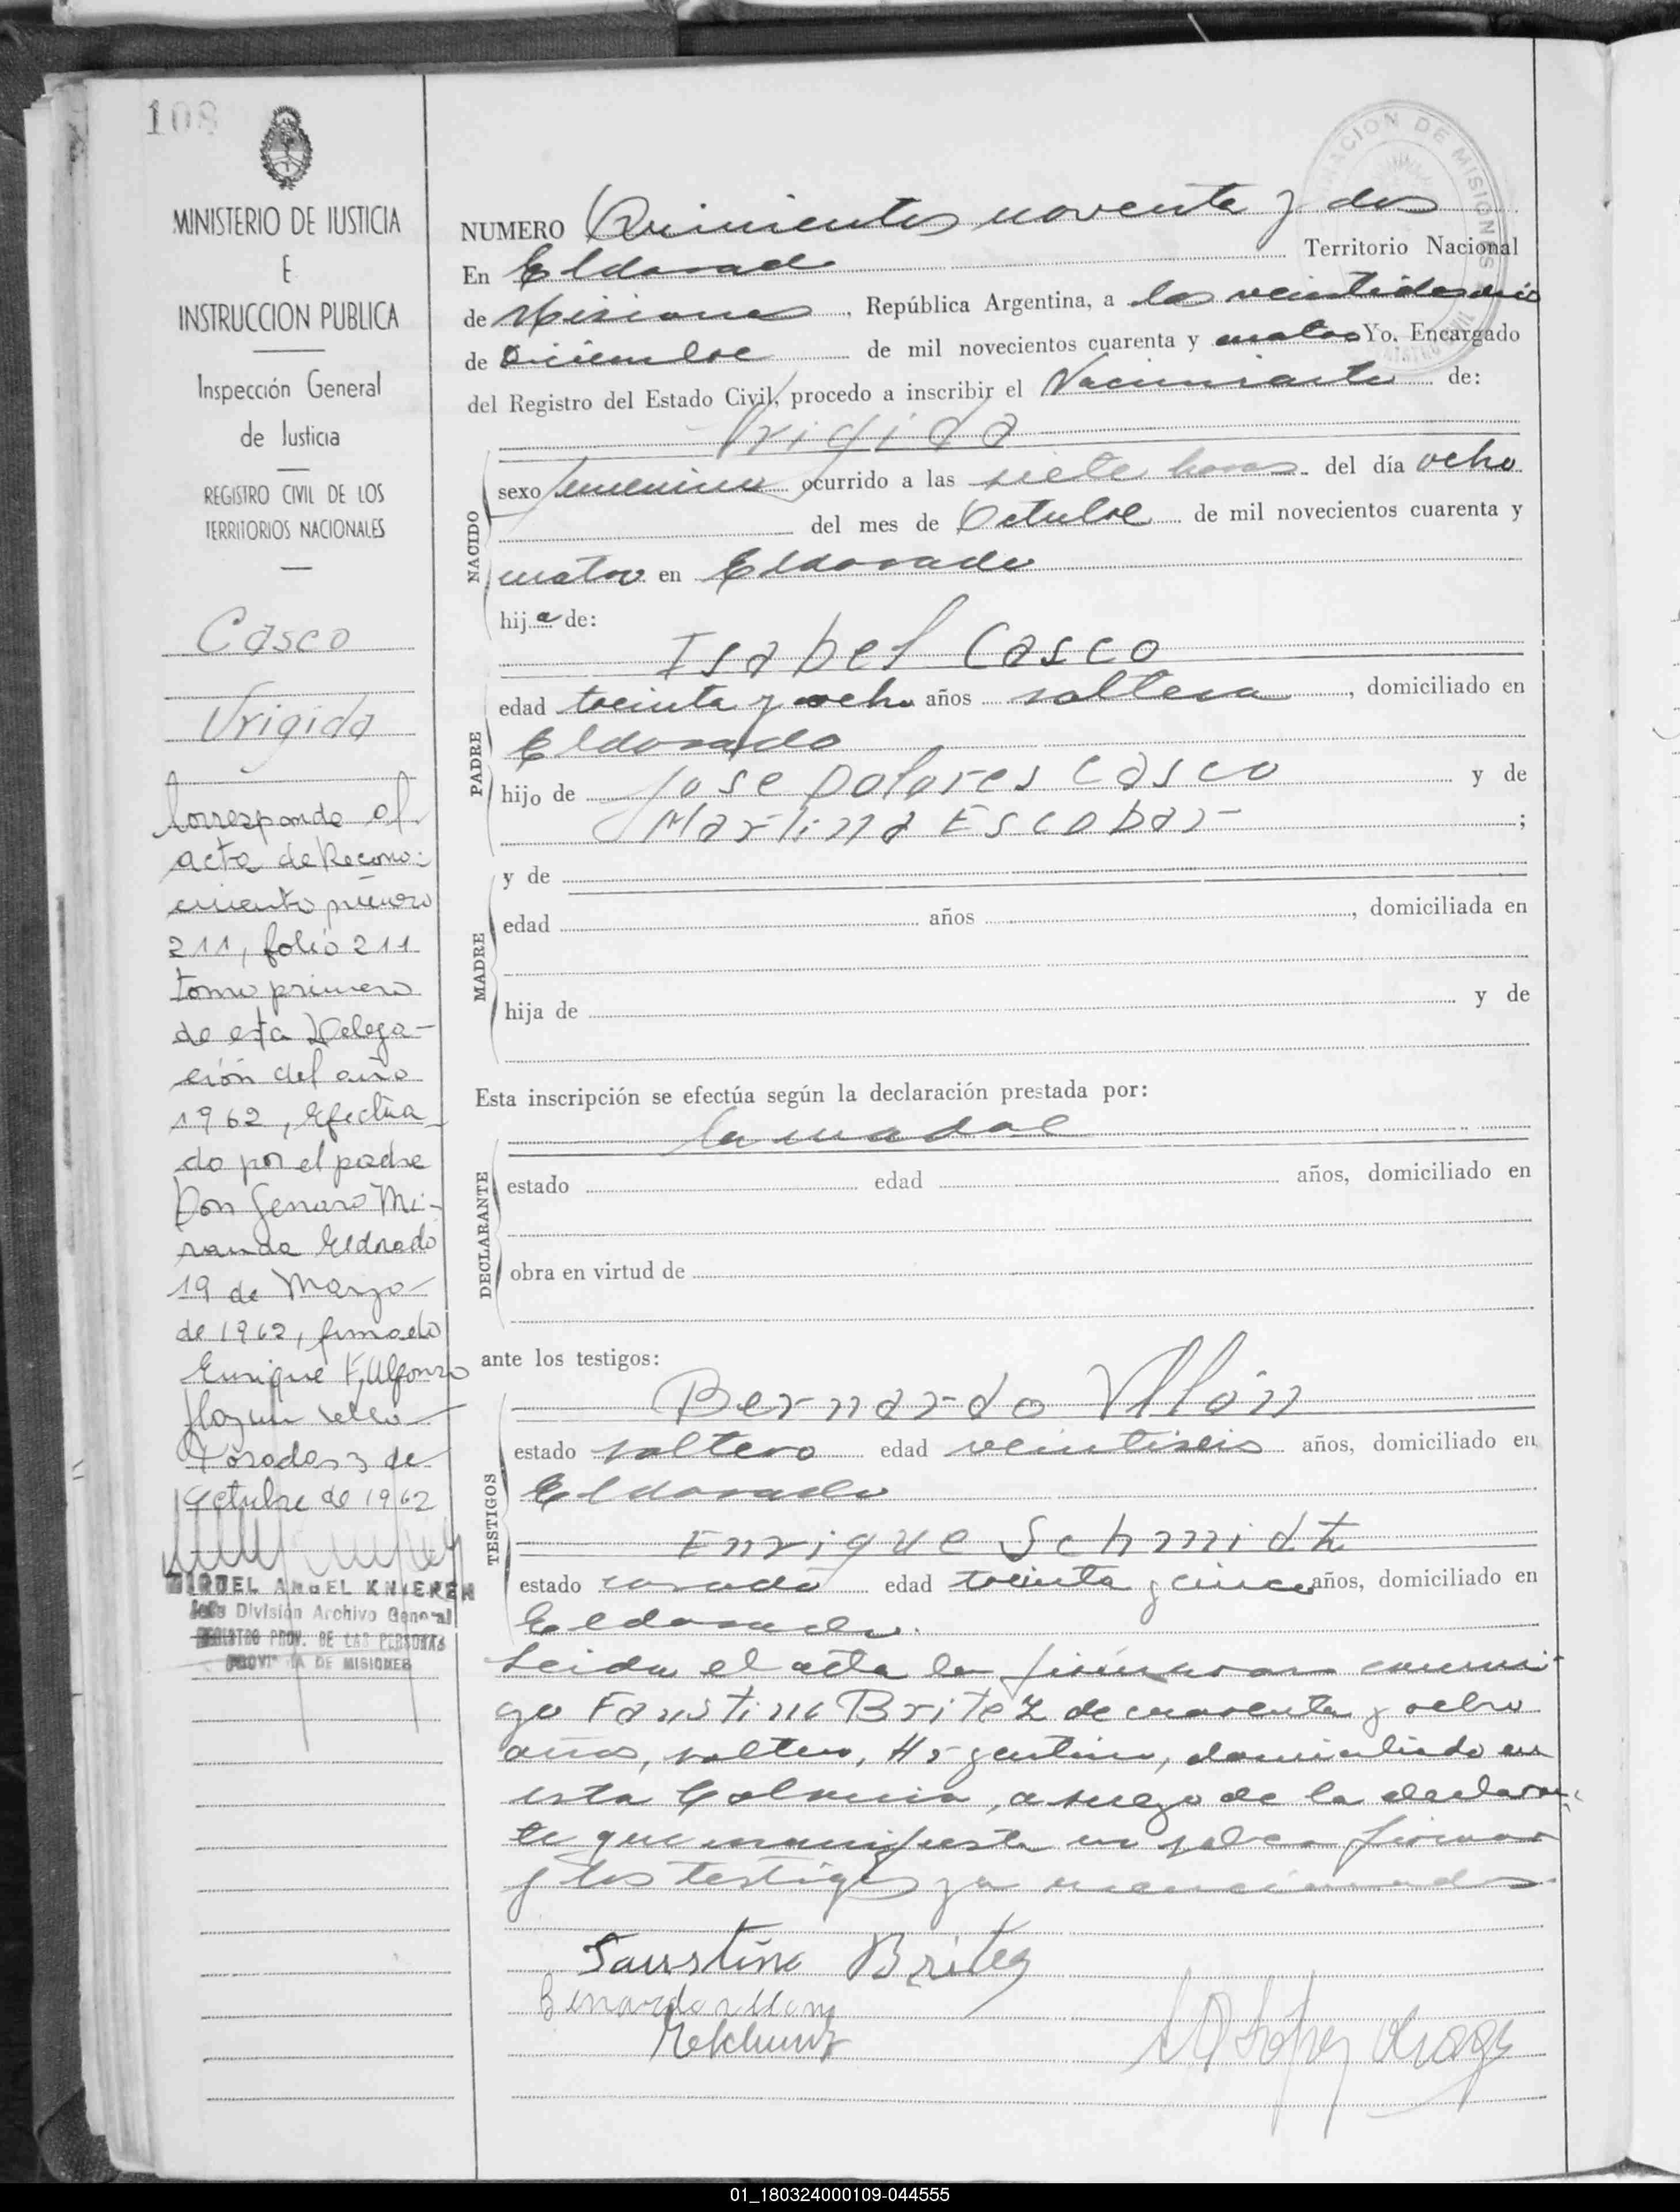 108
MINISTERIO DE JUSTICIA
E
INSTRUCCION PUBLICA
Inspección General
de Justicia
REGISTRO CIVIL DE LOS
TERRITORIOS NACIONALES
Casco
Vrigida
Corresponde al
acta de Recono-
cimiento número
211, folio 211
tomo primero
de esta Delega-
ción del año
1962, efectua-
do por el padre
Don Genaro Mi-
randa Eldorado
19 de Marzo
de 1962, firmado
Enrique F. Alfonzo
Hay un sello
Posadas 3 de
Octubre de 1962
MIGUEL ANGEL KNIEREN
Jefe División Archivo General
REGISTRO PROV. DE LAS PERSONAS
PROVINCIA DE MISIONES
NUMERO Quinientos noventa y dos
En Eldorado Territorio Nacional
de Misiones, República Argentina, a los veintidos dias
de Diciembre de mil novecientos cuarenta y cuatro Yo, Encargado
del Registro del Estado Civil, procedo a inscribir el Nacimiento de:
Vrigida
NACIDO
sexo femenino ocurrido a las siete horas del día ocho
del mes de Octubre de mil novecientos cuarenta y
cuatro en Eldorado
hija de:
Isabel Casco
PADRE
edad treinta y ocho años soltera, domiciliado en
Eldorado
hijo de Jose Dolores Casco y de
Martina Escobar ;
MADRE
y de
edad años , domiciliada en
hija de y de
Esta inscripción se efectúa según la declaración prestada por:
la madre
DECLARANTE
estado edad años, domiciliado en
obra en virtud de
ante los testigos:
TESTIGOS
Bernardo Allón
estado soltero edad veintiseis años, domiciliado en
Eldorado
Enrique Schmidt
estado casado edad treinta y cinco años, domiciliado en
Eldorado.
Leida el acta la firmaron conmi-
go Faustino Britez de cuarenta y ocho
años, soltero, Argentino, domiciliado en
esta Colonia, a ruego de la declaran-
te que manifiesta no saber firmar
y los testigos ya mencionados
Faustino Britez
01_180324000109-044555